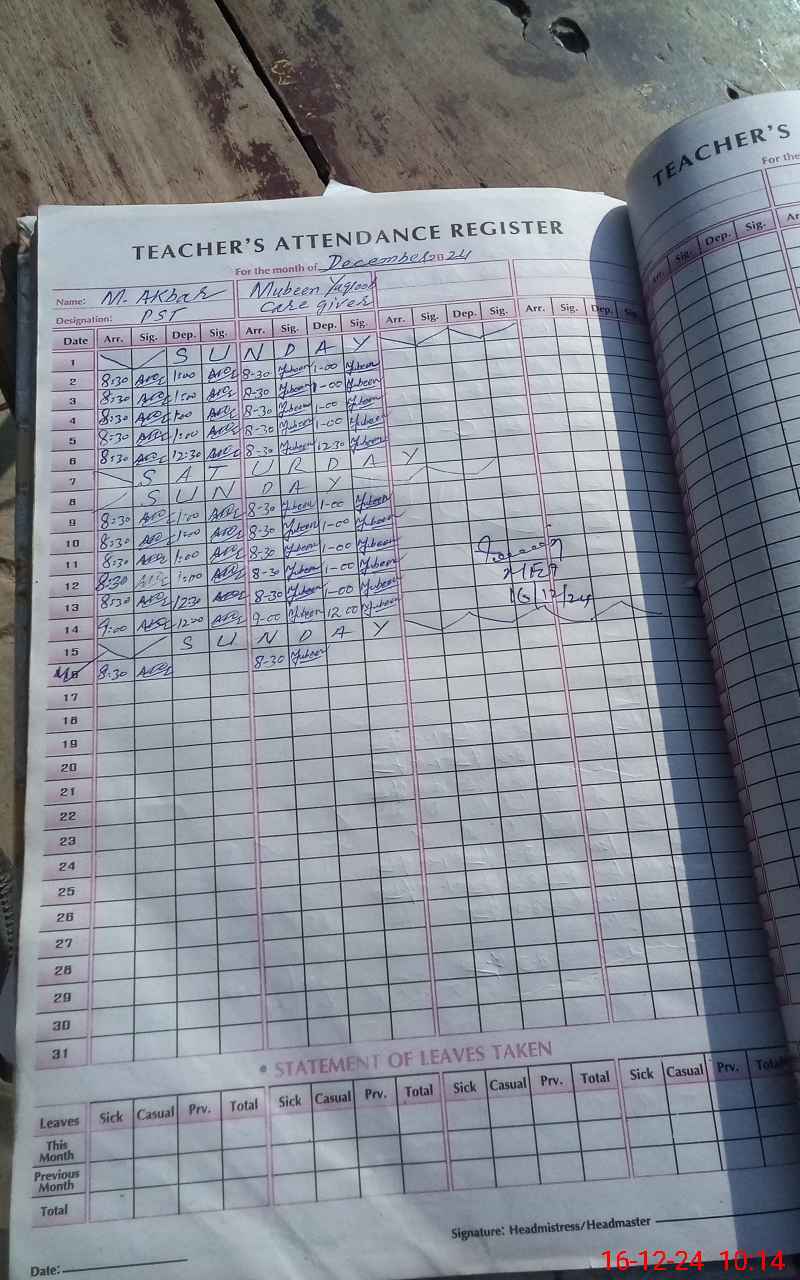 TEACHER'S ATTENDANCE REGISTER
For the month of December 2024
Name: M. Akbar Mubeen
Designation: PST Care giver
Date Arr. Sig. Dep. Sig. Arr. Sig. Dep. Sig. Arr. Sig. Dep. Sig. Arr. Sig. Dep. Sig.
1 S U N D A Y
2 8:30 1:00 8-30 1-00
3 8:30 1:00 8-30 1-00
4 8:30 1:00 8-30 1-00
5 8:30 1:00 8-30 1-00
6 8:30 12:30 8-30 12:30
7 S A T U R D A Y
8 S U N D A Y
9 8:30 1:00 8-30 1-00
10 8:30 1:00 8-30 1-00
11 8:30 1:00 8-30 1-00
12 8:30 1:00 8-30 1-00
13 8:30 12:30 8-30 1-00
14 9:00 12:00 9-00 12.00
16/12/24
15 S U N D A Y
16 8:30 8-30
17
18
19
20
21
22
23
24
25
26
27
28
29
30
31
• STATEMENT OF LEAVES TAKEN
Leaves Sick Casual Prv. Total Sick Casual Prv. Total Sick Casual Prv. Total Sick Casual Prv. Total
This
Month
Previous
Month
Total
Signature: Headmistress/Headmaster
Date:
TEACHER'S
For the
Arr. Sig. Dep. Sig. Ar
16-12-24 10:14